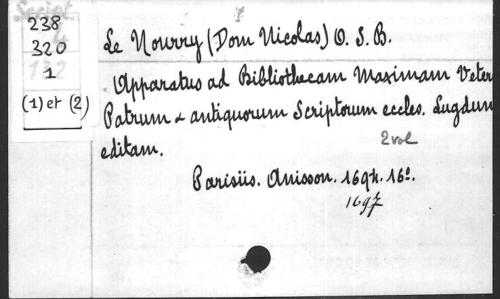 238
320
1
(1) et (2)
Le Nourry (Dom Nicolas) O. S. B.
Apparatus ad Bibliothecam Maximam Veter
Patrum & antiquorum Scriptorum eccles. Lugdun
editam.
2 vol
Parisiis. Anisson. 1694. 16°.
1697